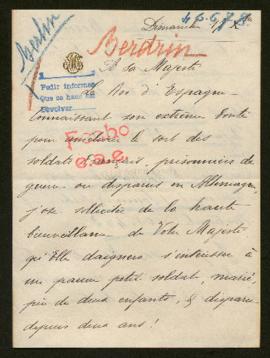 Berlin
Dimanche
4 5 6 7 8
Berdrin
A Sa Majesté
Pedir informes
Que se haga
devolver
Roi d'Espagne
Connaissant son extrême bonté
pour améliorer le sort des
Fcho
soldats français, prisonniers de
guerre ou disparus en Allemagne,
j'ose solliciter de la haute
bienveillance de Votre Majesté
qu'Elle daignera s'intéresser à
un pauvre petit soldat, marié,
père de deux enfants, & disparu
depuis deux ans!